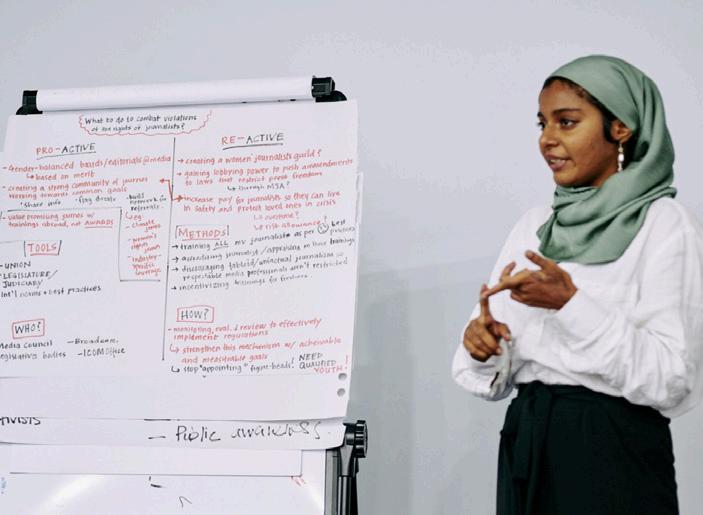 What to do to combat violations
of the rights of journalists?
PRO-ACTIVE
- Gender-balanced boards/editorials @ media
↳ based on merit
- creating a strong community of journos
working towards common goals
* share info
- value promising journos w/
trainings abroad, not AWARDS
builds
network for
referrals
↳ eg:
- climate
journos
- women's
rights
journos
- industry-
specific
coverage
TOOLS
- UNION
- LEGISLATURE/
JUDICIARY
Int'l norms + best practices
WHO?
Media Council
Legislative bodies
- Broadcom.
- ICOM Office
RE-ACTIVE
- creating a women journalists guild?
- gaining lobbying power to push amendments
to laws that restrict press freedom
↳ through MJA?
- increase pay for journalists so they can live
in safety and protect loved ones in crisis
↳ overtime?
↳ risk allowance?
METHODS
→ training ALL mv journalists as per best
practices
→ accrediting journalist/appraising on those trainings
→ discouraging tabloid/unfactual journalism so
respectable media professionals aren't restricted
→ incentivizing trainings for
HOW?
- monitoring, eval. & review to effectively
implement regulations
↳ strengthen this mechanism w/ achievable
and measurable goals
↳ stop "appointing" figure-heads! NEED
QUALIFIED
YOUTH!
TIVISTS
- Public awareness.